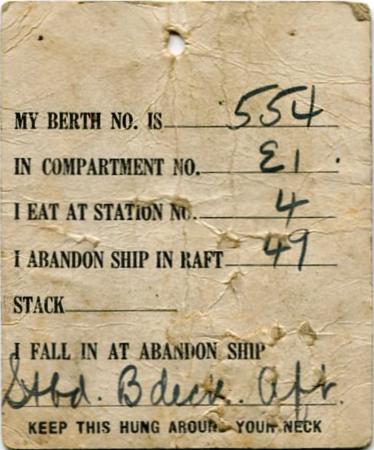 MY BERTH NO. IS 554
IN COMPARTMENT NO. E1.
I EAT AT STATION NO. 4
I ABANDON SHIP IN RAFT 49
STACK
I FALL IN AT ABANDON SHIP
Stbd. B deck. Aft.
KEEP THIS HUNG AROUND YOUR NECK